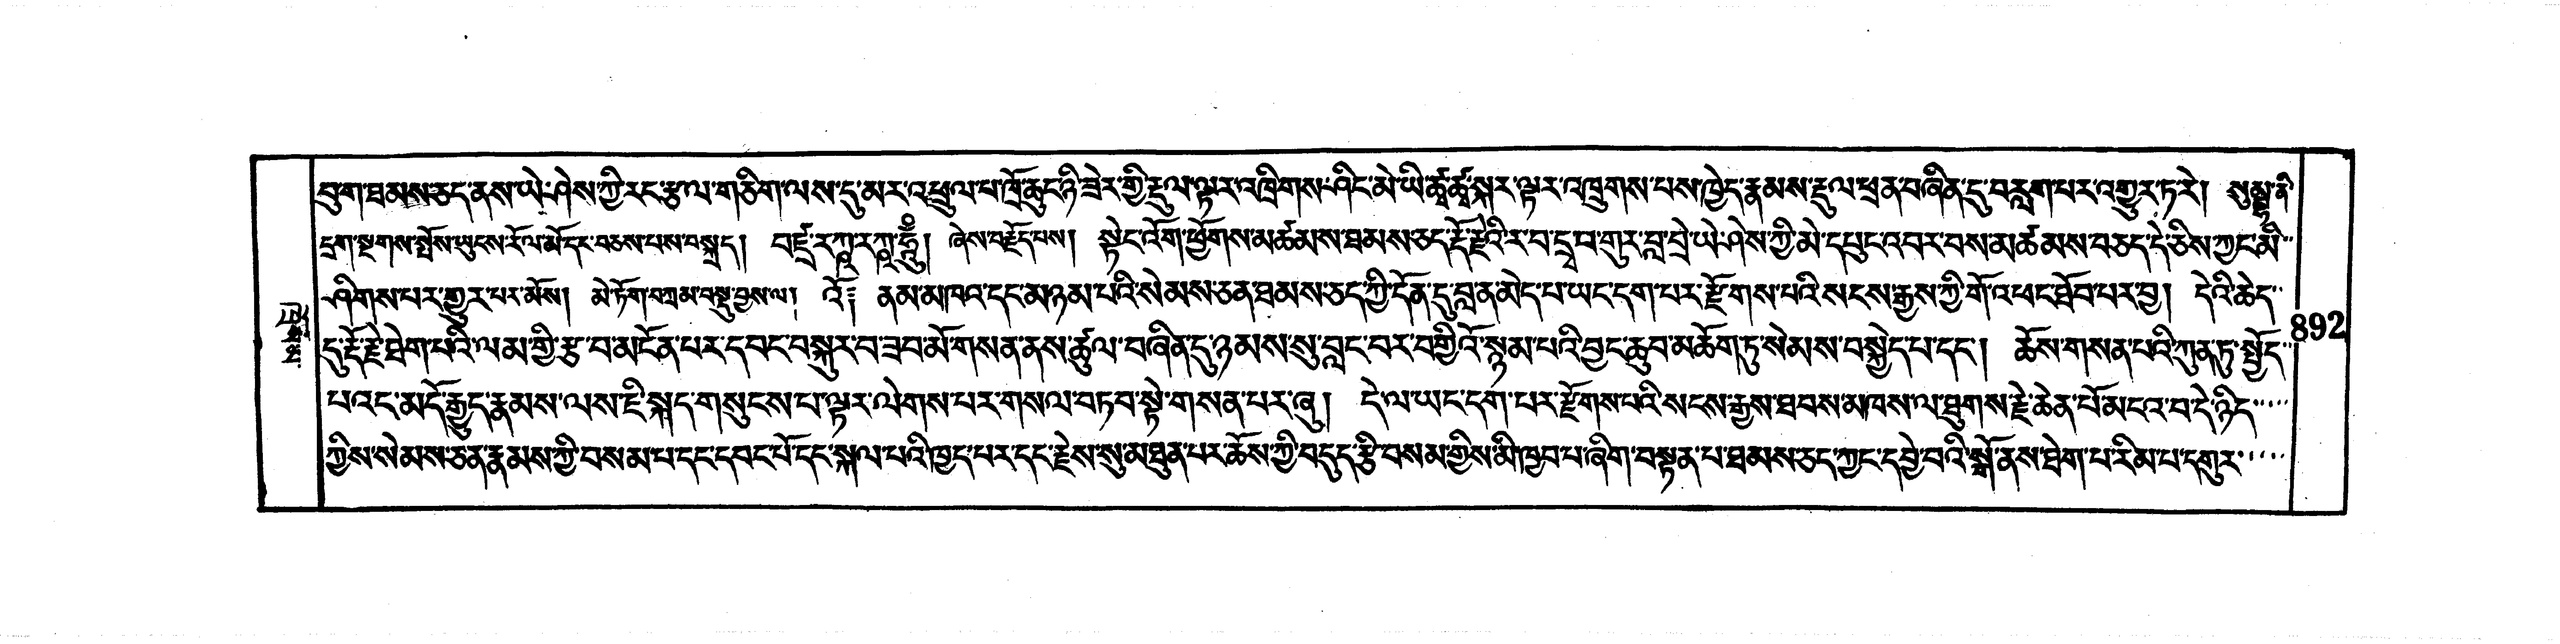 བྲག་ཐམས་ཅད་ནས་ཡེ་ཤེས་ཀྱི་རང་རྩལ་གཅིག་ལས་དུ་མར་འཕྲུལ་པ་ཁྲོ་ཆུང་ཉི་ཟེར་གྱི་རྡུལ་ལྟར་འཁྲིགས་ཤིང་མེ་ཡི་ཚྭ་ཚྭ་སྐར་ལྟར་འཁྲུགས་པས་ཁྱེད་རྣམས་རྡུལ་ཕྲན་བཞིན་དུ་བརླག་པར་འགྱུར་ཏ་རེ། སུམྦྷ་ནི
དྲག་སྔགས་སྤོས་ཡུངས་རོལ་མོ་དང་བཅས་པས་བསྐྲད། བཛྲ་རཀྵ་རཀྵ་ཧཱུྃ། ཞེས་བརྗོད་པས། སྟེང་འོག་ཕྱོགས་མཚམས་ཐམས་ཅད་རྡོ་རྗེའི་ར་བ་དྲྭ་བ་གུར་བླ་བྲེ་ཡེ་ཤེས་ཀྱི་མེ་དཔུང་འབར་བས་མཚམས་བཅད་དེ་ཅིས་ཀྱང་མི
ཤིགས་པར་གྱུར་པར་མོས། མེ་ཏོག་བཀྲམ་བསྡུ་བྱས་ལ། འོ༔ ནམ་མཁའ་དང་མཉམ་པའི་སེམས་ཅན་ཐམས་ཅད་ཀྱི་དོན་དུ་བླ་ན་མེད་པ་ཡང་དག་པར་རྫོགས་པའི་སངས་རྒྱས་ཀྱི་གོ་འཕང་ཐོབ་པར་བྱ། དེའི་ཆེད
དུ་རྡོ་རྗེ་ཐེག་པའི་ལམ་གྱི་རྩ་བ་མངོན་པར་དབང་བསྐུར་བ་ཟབ་མོ་གསན་ནས་ཚུལ་བཞིན་དུ་ཉམས་སུ་བླང་བར་བགྱིའོ་སྙམ་པའི་བྱང་ཆུབ་མཆོག་ཏུ་སེམས་བསྐྱེད་པ་དང་། ཆོས་གསན་པའི་ཀུན་ཏུ་སྤྱོད
པའང་མདོ་རྒྱུད་རྣམས་ལས་ཇི་སྐད་གསུངས་པ་ལྟར་ལེགས་པར་གསལ་བཏབ་སྟེ་གསན་པར་ཞུ། དེ་ལ་ཡང་དག་པར་རྫོགས་པའི་སངས་རྒྱས་ཐབས་མཁས་ལ་ཐུགས་རྗེ་ཆེན་པོ་མངའ་བ་དེ་ཉིད
ཀྱིས་སེམས་ཅན་རྣམས་ཀྱི་བསམ་པ་དང་དབང་པོ་དང་སྐལ་པའི་ཁྱད་པར་དང་རྗེས་སུ་མཐུན་པར་ཆོས་ཀྱི་བདུད་རྩི་བསམ་གྱིས་མི་ཁྱབ་པ་ཞིག་བསྟན་པ་ཐམས་ཅད་ཀྱང་དབྱེ་བའི་སྒོ་ནས་ཐེག་པ་རིམ་པ་དགུར
892